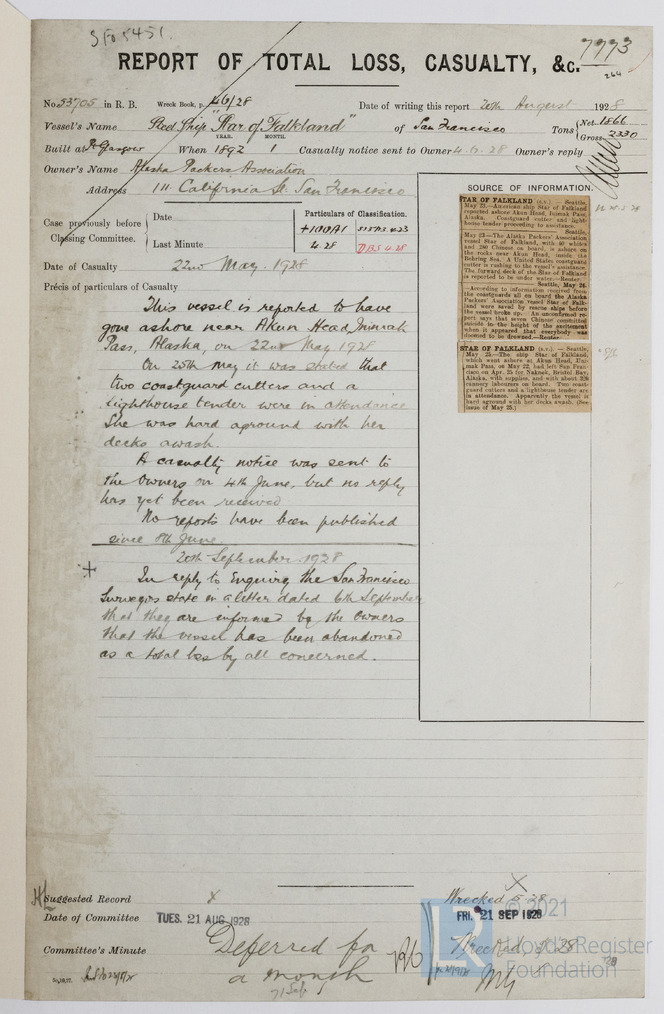 SFo 5451.
7773
264
REPORT OF TOTAL LOSS, CASUALTY, &c.
No. 53705 in R. B. Wreck Book, p. 46/28 Date of writing this report 20th August 1928
Vessel's Name Steel Ship "Star of Falkland" of San Francisco Tons { Net 1866
Gross 2330
YEAR. MONTH.
Built at Pt Glasgow When 1892 1 Casualty notice sent to Owner 4.6.28 Owner's reply
Owner's Name Alaska Packers Association
Address 111 California St. San Francisco
Case previously before Classing Committee. { Date
Last Minute
Particulars of Classification.
+100A1
4.28
DBS 4.28
Date of Casualty 22nd May. 1928
Précis of particulars of Casualty
This vessel is reported to have
gone ashore near Akun Head, Unimak
Pass, Alaska, on 22nd May 1928
On 25th May it was stated that
two coastguard cutters and a
lighthouse tender were in attendance
She was hard aground with her
decks awash.
A casualty notice was sent to
the Owners on 4th June, but no reply
has yet been received
No reports have been published
since 8th June.
20th September. 1928
+
In reply to enquiry the San Francisco
Surveyors state in a letter dated 6th September
that they are informed by the Owners
that the vessel has been abandoned
as a total loss by all concerned.
SOURCE OF INFORMATION.
STAR OF FALKLAND (s.v.). — Seattle,
May 23.—American ship Star of Falkland
reported ashore Akun Head, Inimak Pass,
Alaska. Coastguard cutter and light-
house tender proceeding to assistance.
— Seattle,
May 23.—The Alaska Packers' Association
vessel Star of Falkland, with 40 whites
and 280 Chinese on board, is ashore on
the rocks near Akun Head, inside the
Behring Sea. A United States coastguard
cutter is rushing to the vessel's assistance.
The forward deck of the Star of Falkland
is reported to be under water.—Reuter.
— Seattle, May 26.
—According to information received from
the coastguards all on board the Alaska
Packers' Association vessel Star of Falk-
land were saved by rescue ships before
the vessel broke up. An unconfirmed re-
port says that seven Chinese committed
suicide in the height of the excitement
when it appeared that everybody was
doomed to be drowned.—Reuter.
STAR OF FALKLAND (s.v.). — Seattle,
May 25.—The ship Star of Falkland,
which went ashore at Akun Head, Uni-
mak Pass, on May 22, had left San Fran-
cisco on Apr. 25 for Naknek, Bristol Bay,
Alaska, with supplies, and with about 320
cannery labourers on board. Two coast-
guard cutters and a lighthouse tender are
in attendance. Apparently the vessel is
hard aground with her decks awash. (See
issue of May 25.)
Suggested Record x
Wrecked 5.28
Date of Committee TUES. 21 AUG 1928
FRI. 21 SEP 1928
Committee's Minute Deferred for
a month
Wrecked, 5.28
© 2021
LR
Lloyd's Register
Foundation